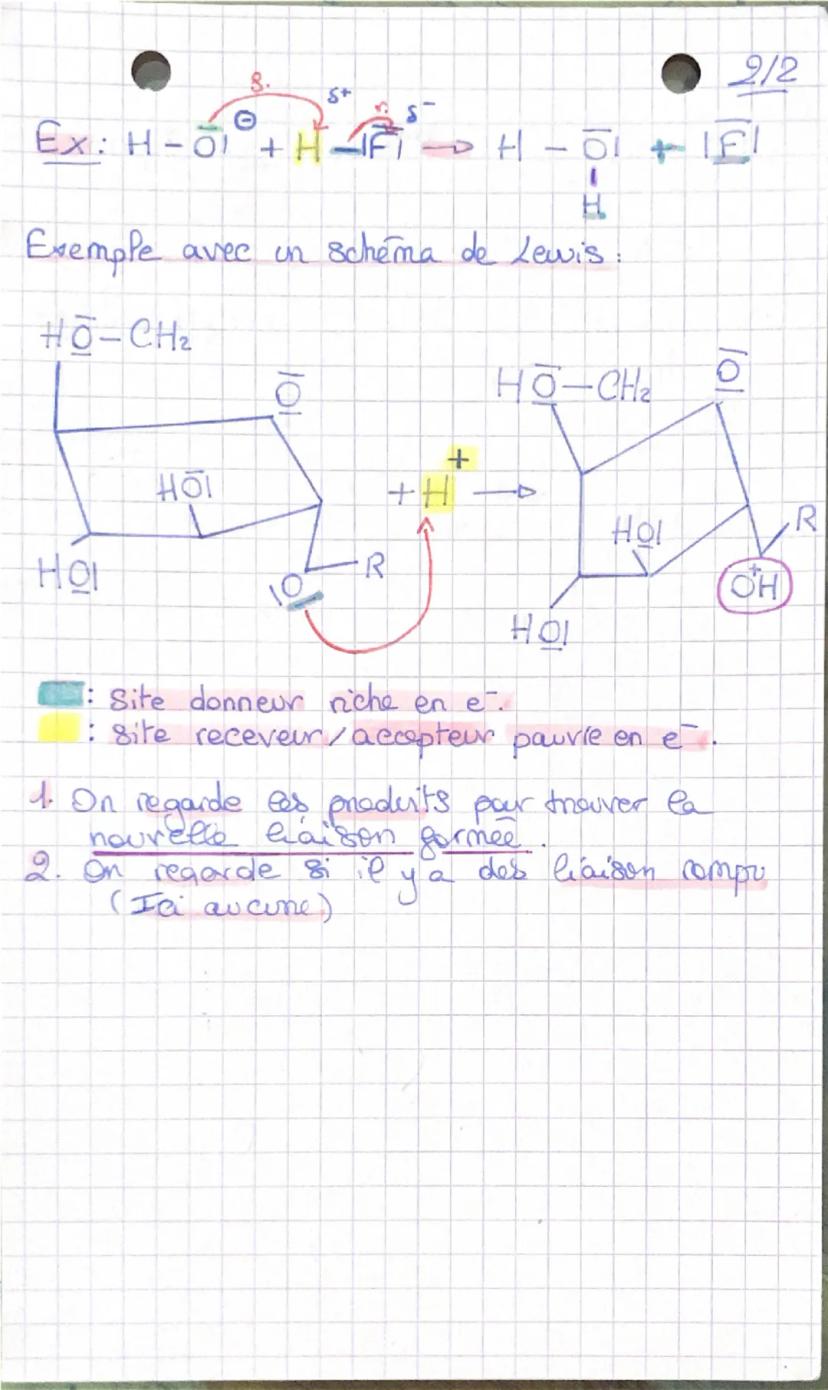 2/2
f. δ+ r. δ-
Ex: H - O| ⊖ + H - |F| → H - O| + |F|
H
Exemple avec un schéma de Lewis:
HO-CH2
O
HO|
HO|
|O
R
+ H+ →
HO-CH2
O
HO|
HO|
R
O+H
: Site donneur riche en e-.
: site receveur/accepteur pauvre en e-.
1. On regarde les produits pour trouver la
nouvelle liaison formée.
2. On regarde si il y a des liaison rompu
(Ici aucune)